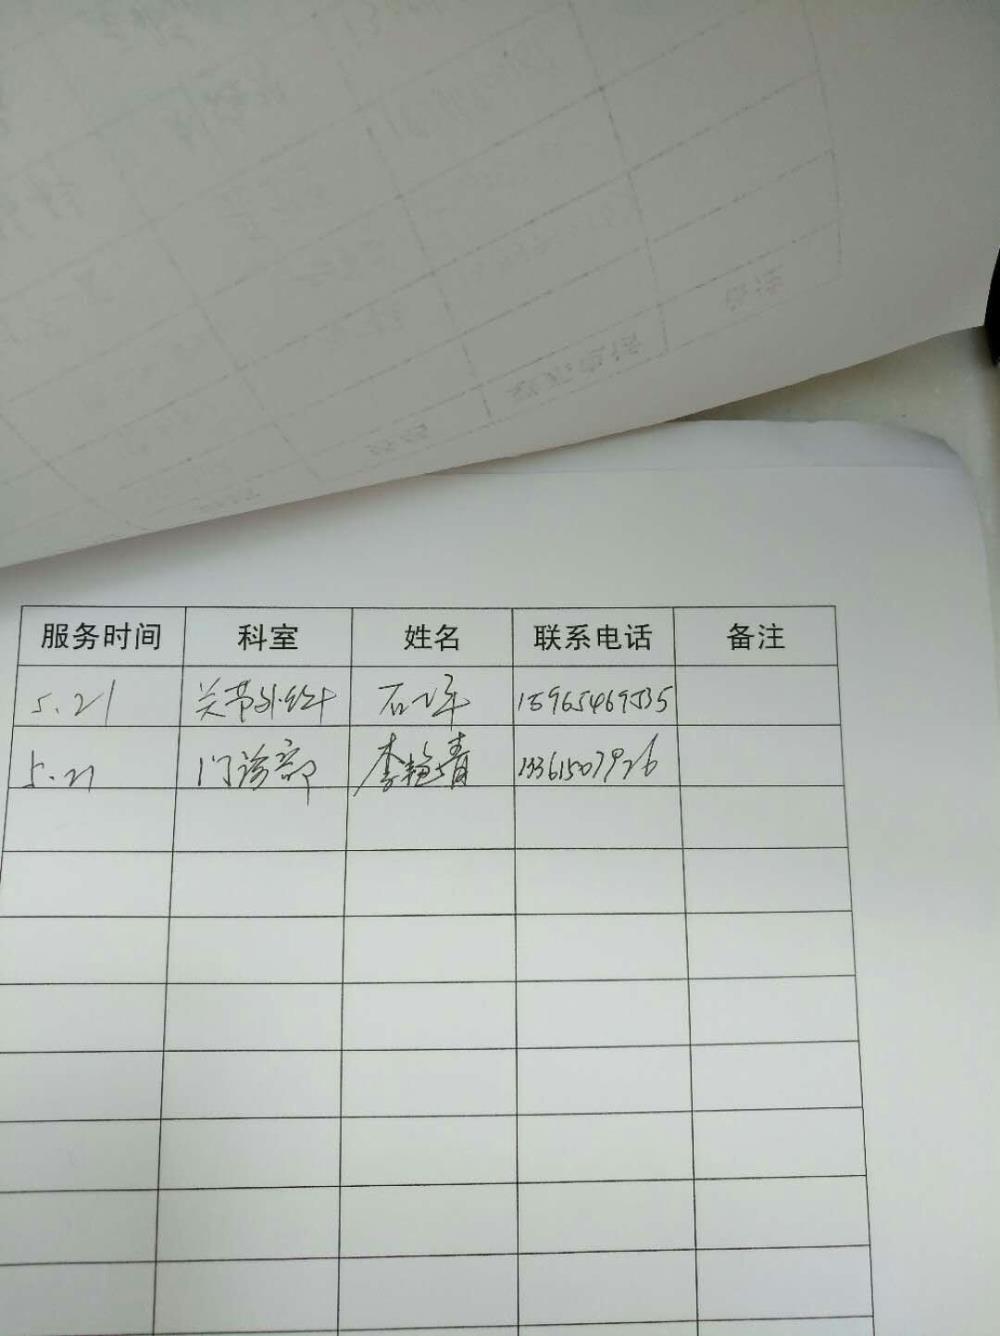 服务时间 科室 姓名 联系电话 备注
5.21 关节外科 石 15965469535
5.21 门诊部 李艳青 13361507926